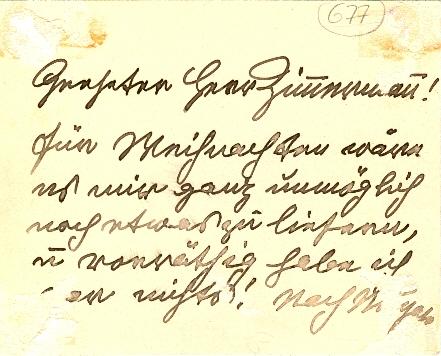 677
Geehrter Herr Zimmermann!
für Weihnachten wäre
es mir ganz unmöglich
noch etwas zu liefern,
u vorräthig habe ich
er nichts! Nach